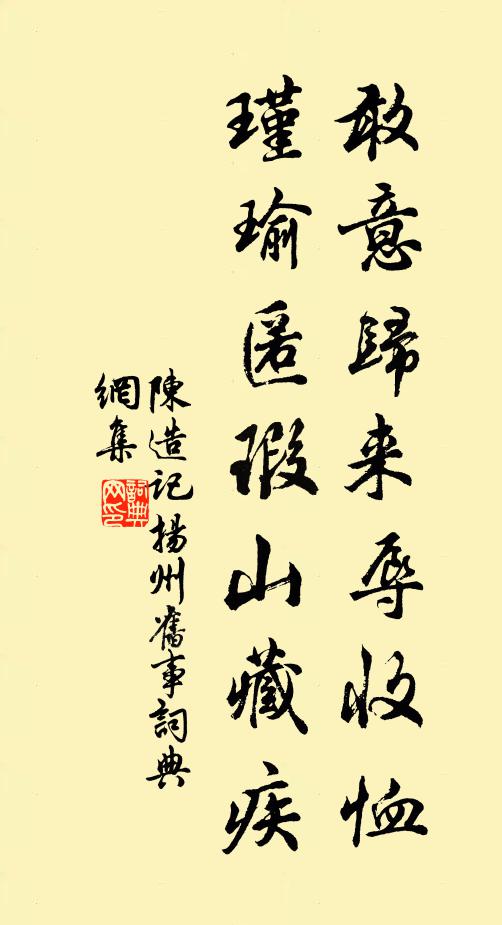 敢意歸来辱收恤
瑾瑜匿瑕山藏疾
陳造記揚州舊事詞典
網集
詞典網印